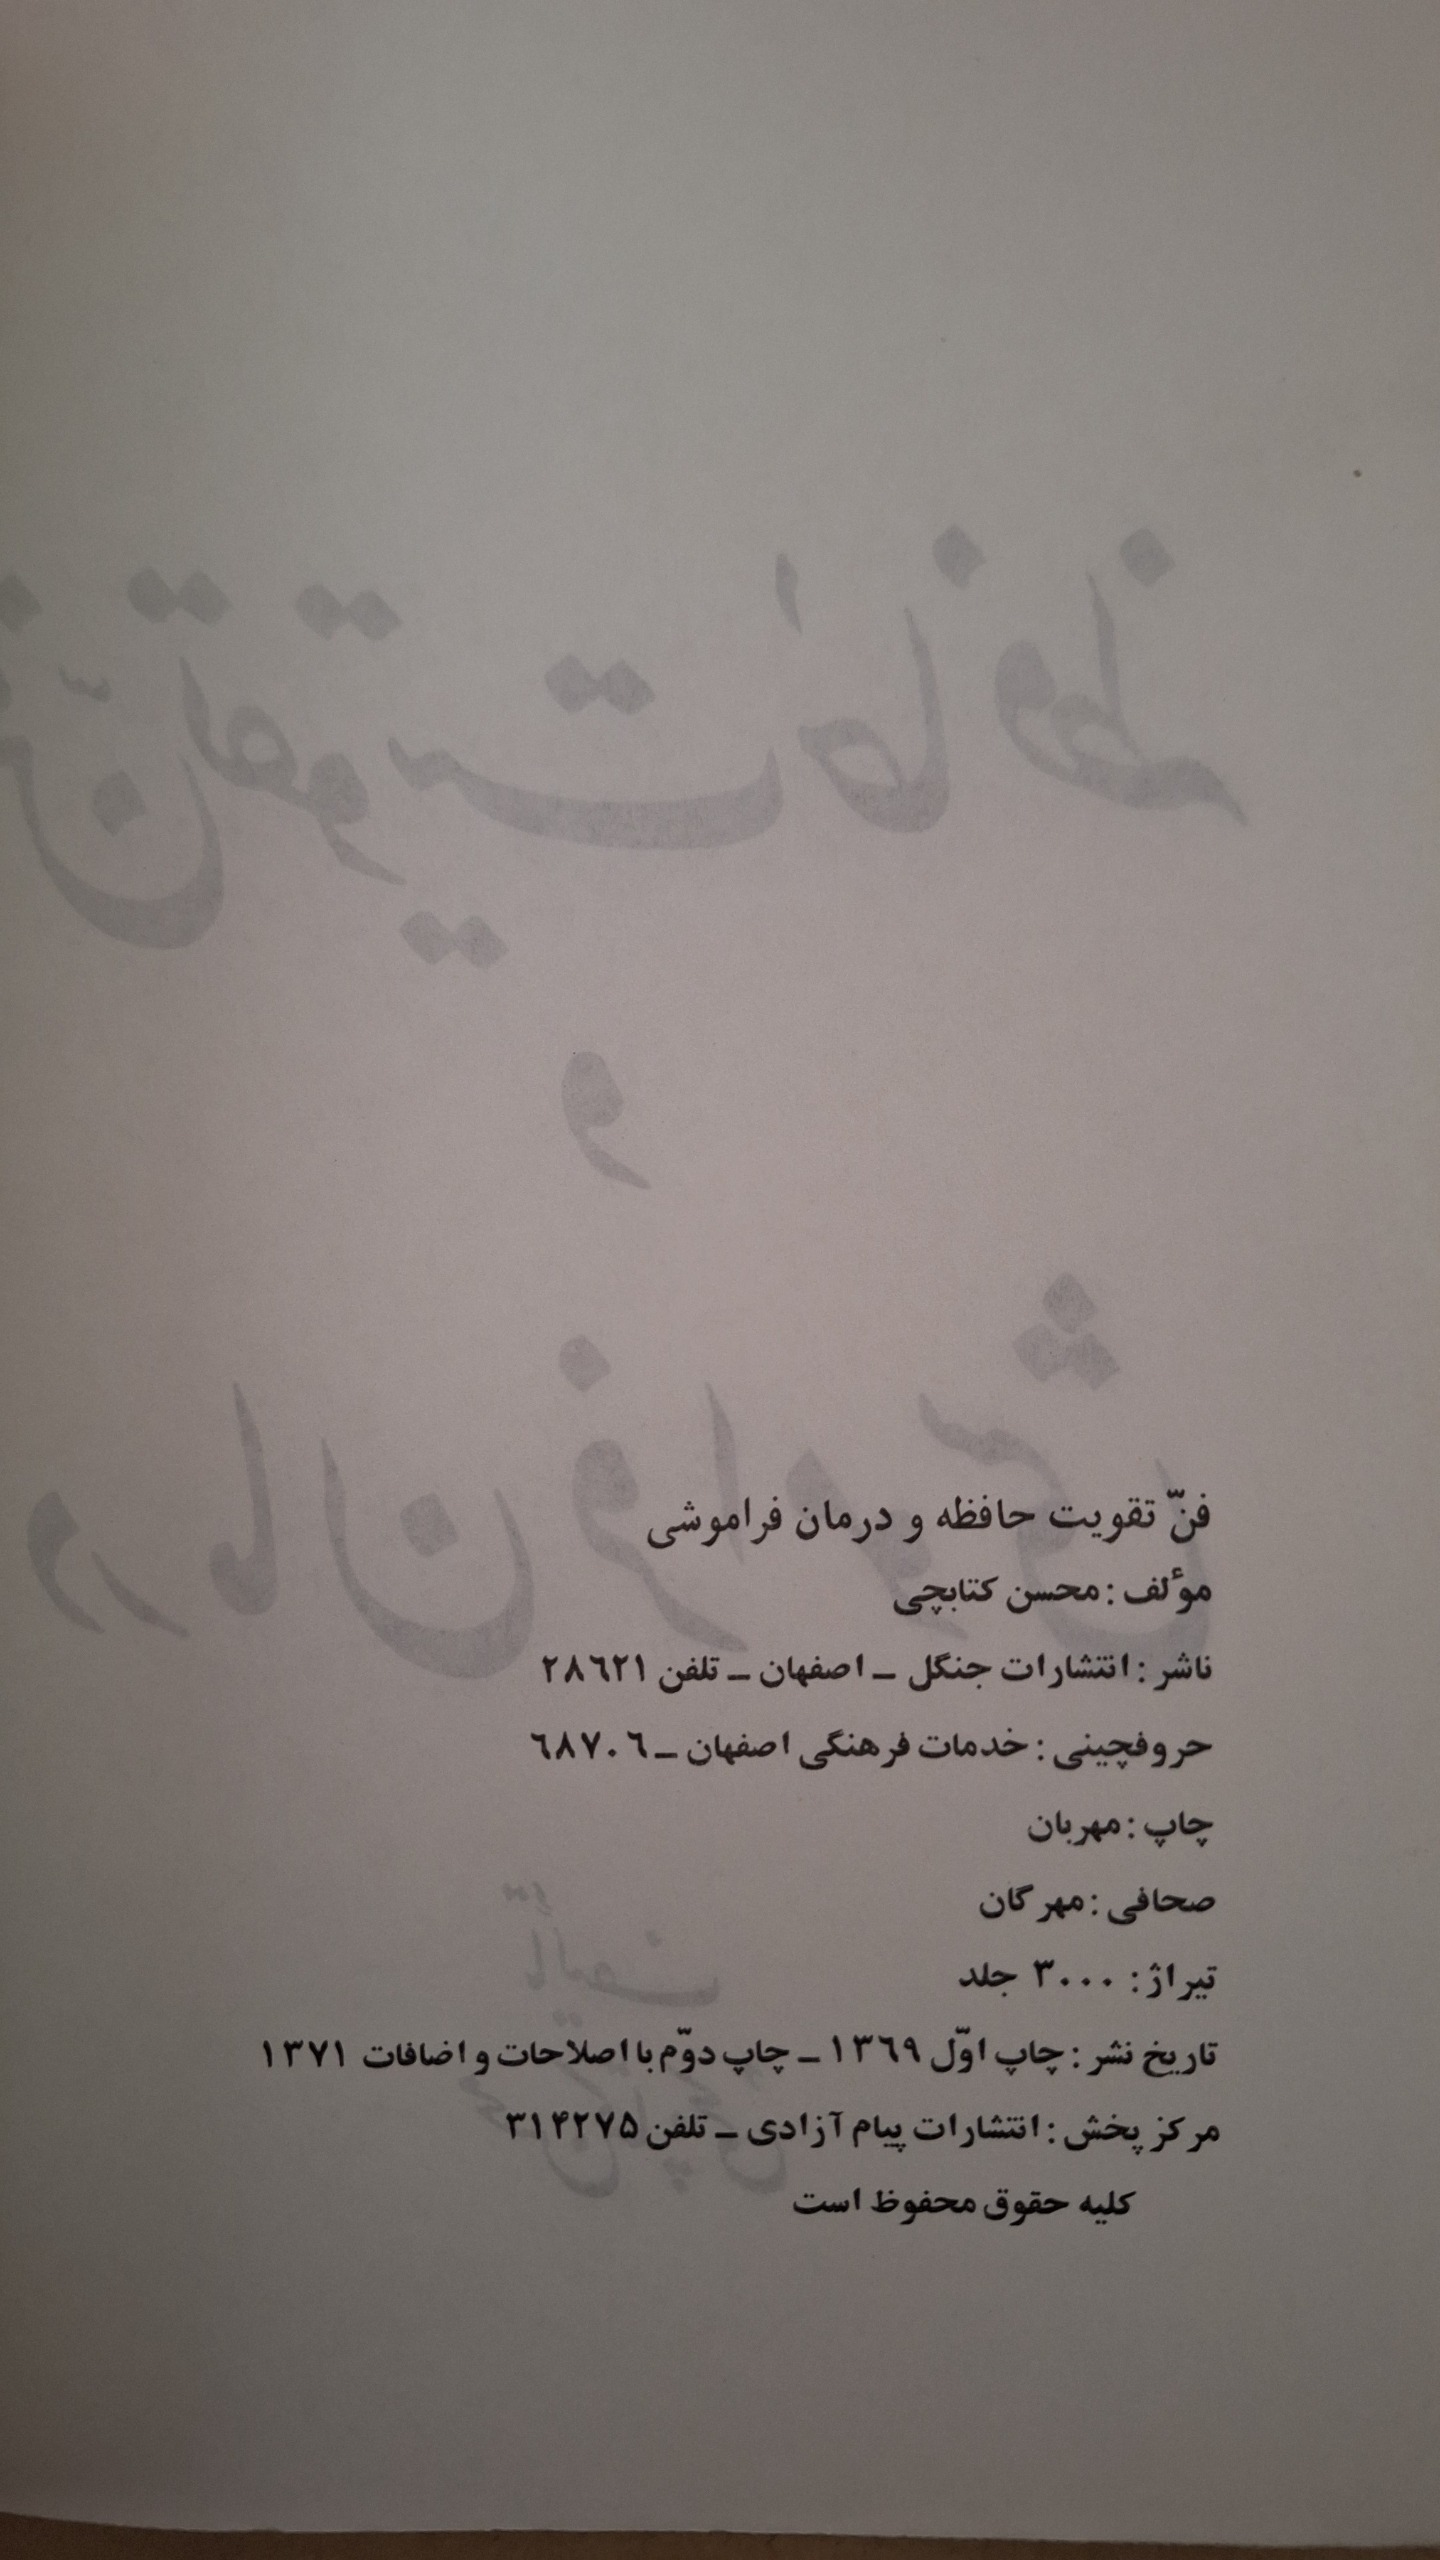 فنّ تقویت حافظه و درمان فراموشی
موٴلف : محسن کتابچی
ناشر : انتشارات جنگل ـ اصفهان ـ تلفن ٢٨٦٢١
حروفچینی : خدمات فرهنگی اصفهان ـ ٦٨٧٠٦
چاپ : مهربان
صحافی : مهرگان
تیراژ : ٣٠٠٠ جلد
تاریخ نشر : چاپ اوّل ١٣٦٩ ـ چاپ دوّم با اصلاحات و اضافات ١٣٧١
مرکز پخش : انتشارات پیام آزادی ـ تلفن ۳۱۴۲۷۵
کلیه حقوق محفوظ است